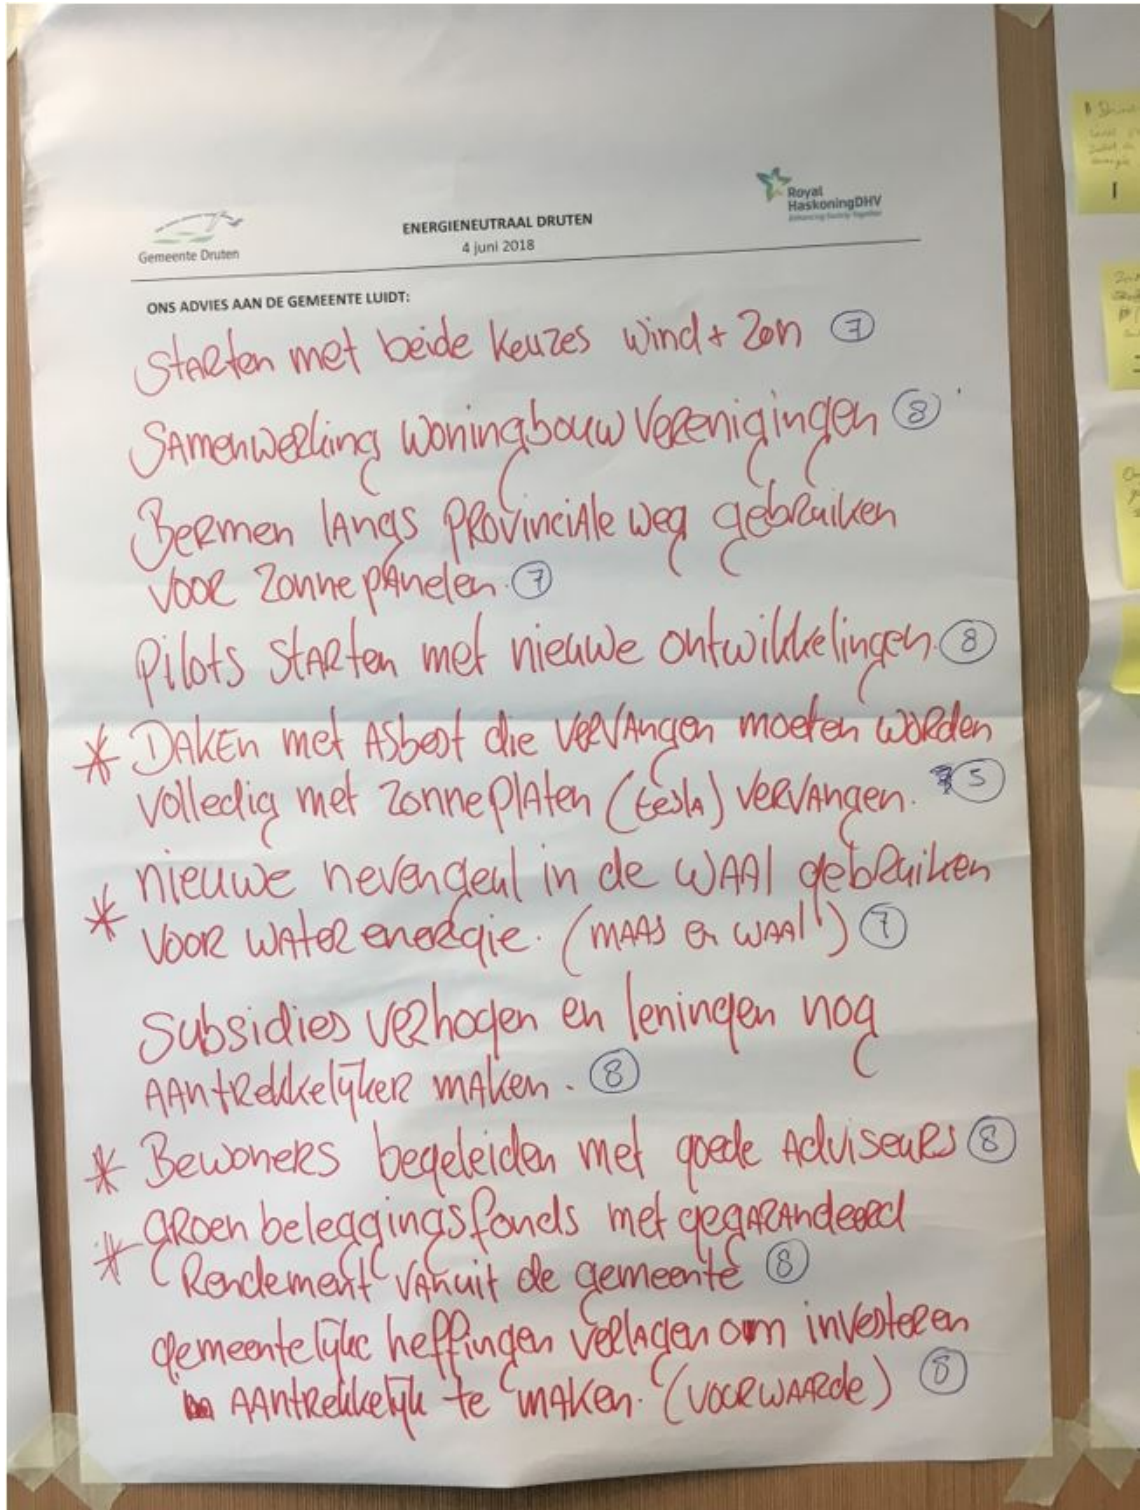 Gemeente Druten
ENERGIENEUTRAAL DRUTEN
4 juni 2018
Royal
HaskoningDHV
Enhancing Society Together
ONS ADVIES AAN DE GEMEENTE LUIDT:
Starten met beide keuzes wind + zon 7
Samenwerking woningbouwverenigingen 8
Bermen langs provinciale weg gebruiken
voor zonnepanelen. 7
Pilots starten met nieuwe ontwikkelingen. 8
* Daken met asbest die vervangen moeten worden
volledig met zonneplaten (tesla) vervangen. 5
* nieuwe nevengeul in de waal gebruiken
voor waterenergie. (maas en waal!) 7
Subsidies verhogen en leningen nog
aantrekkelijker maken. 8
* Bewoners begeleiden met goede adviseurs 8
* groen beleggingsfonds met gegarandeerd
Rendement vanuit de gemeente 8
gemeentelijke heffingen verlagen om investeren
aantrekkelijk te maken. (voorwaarde) 8